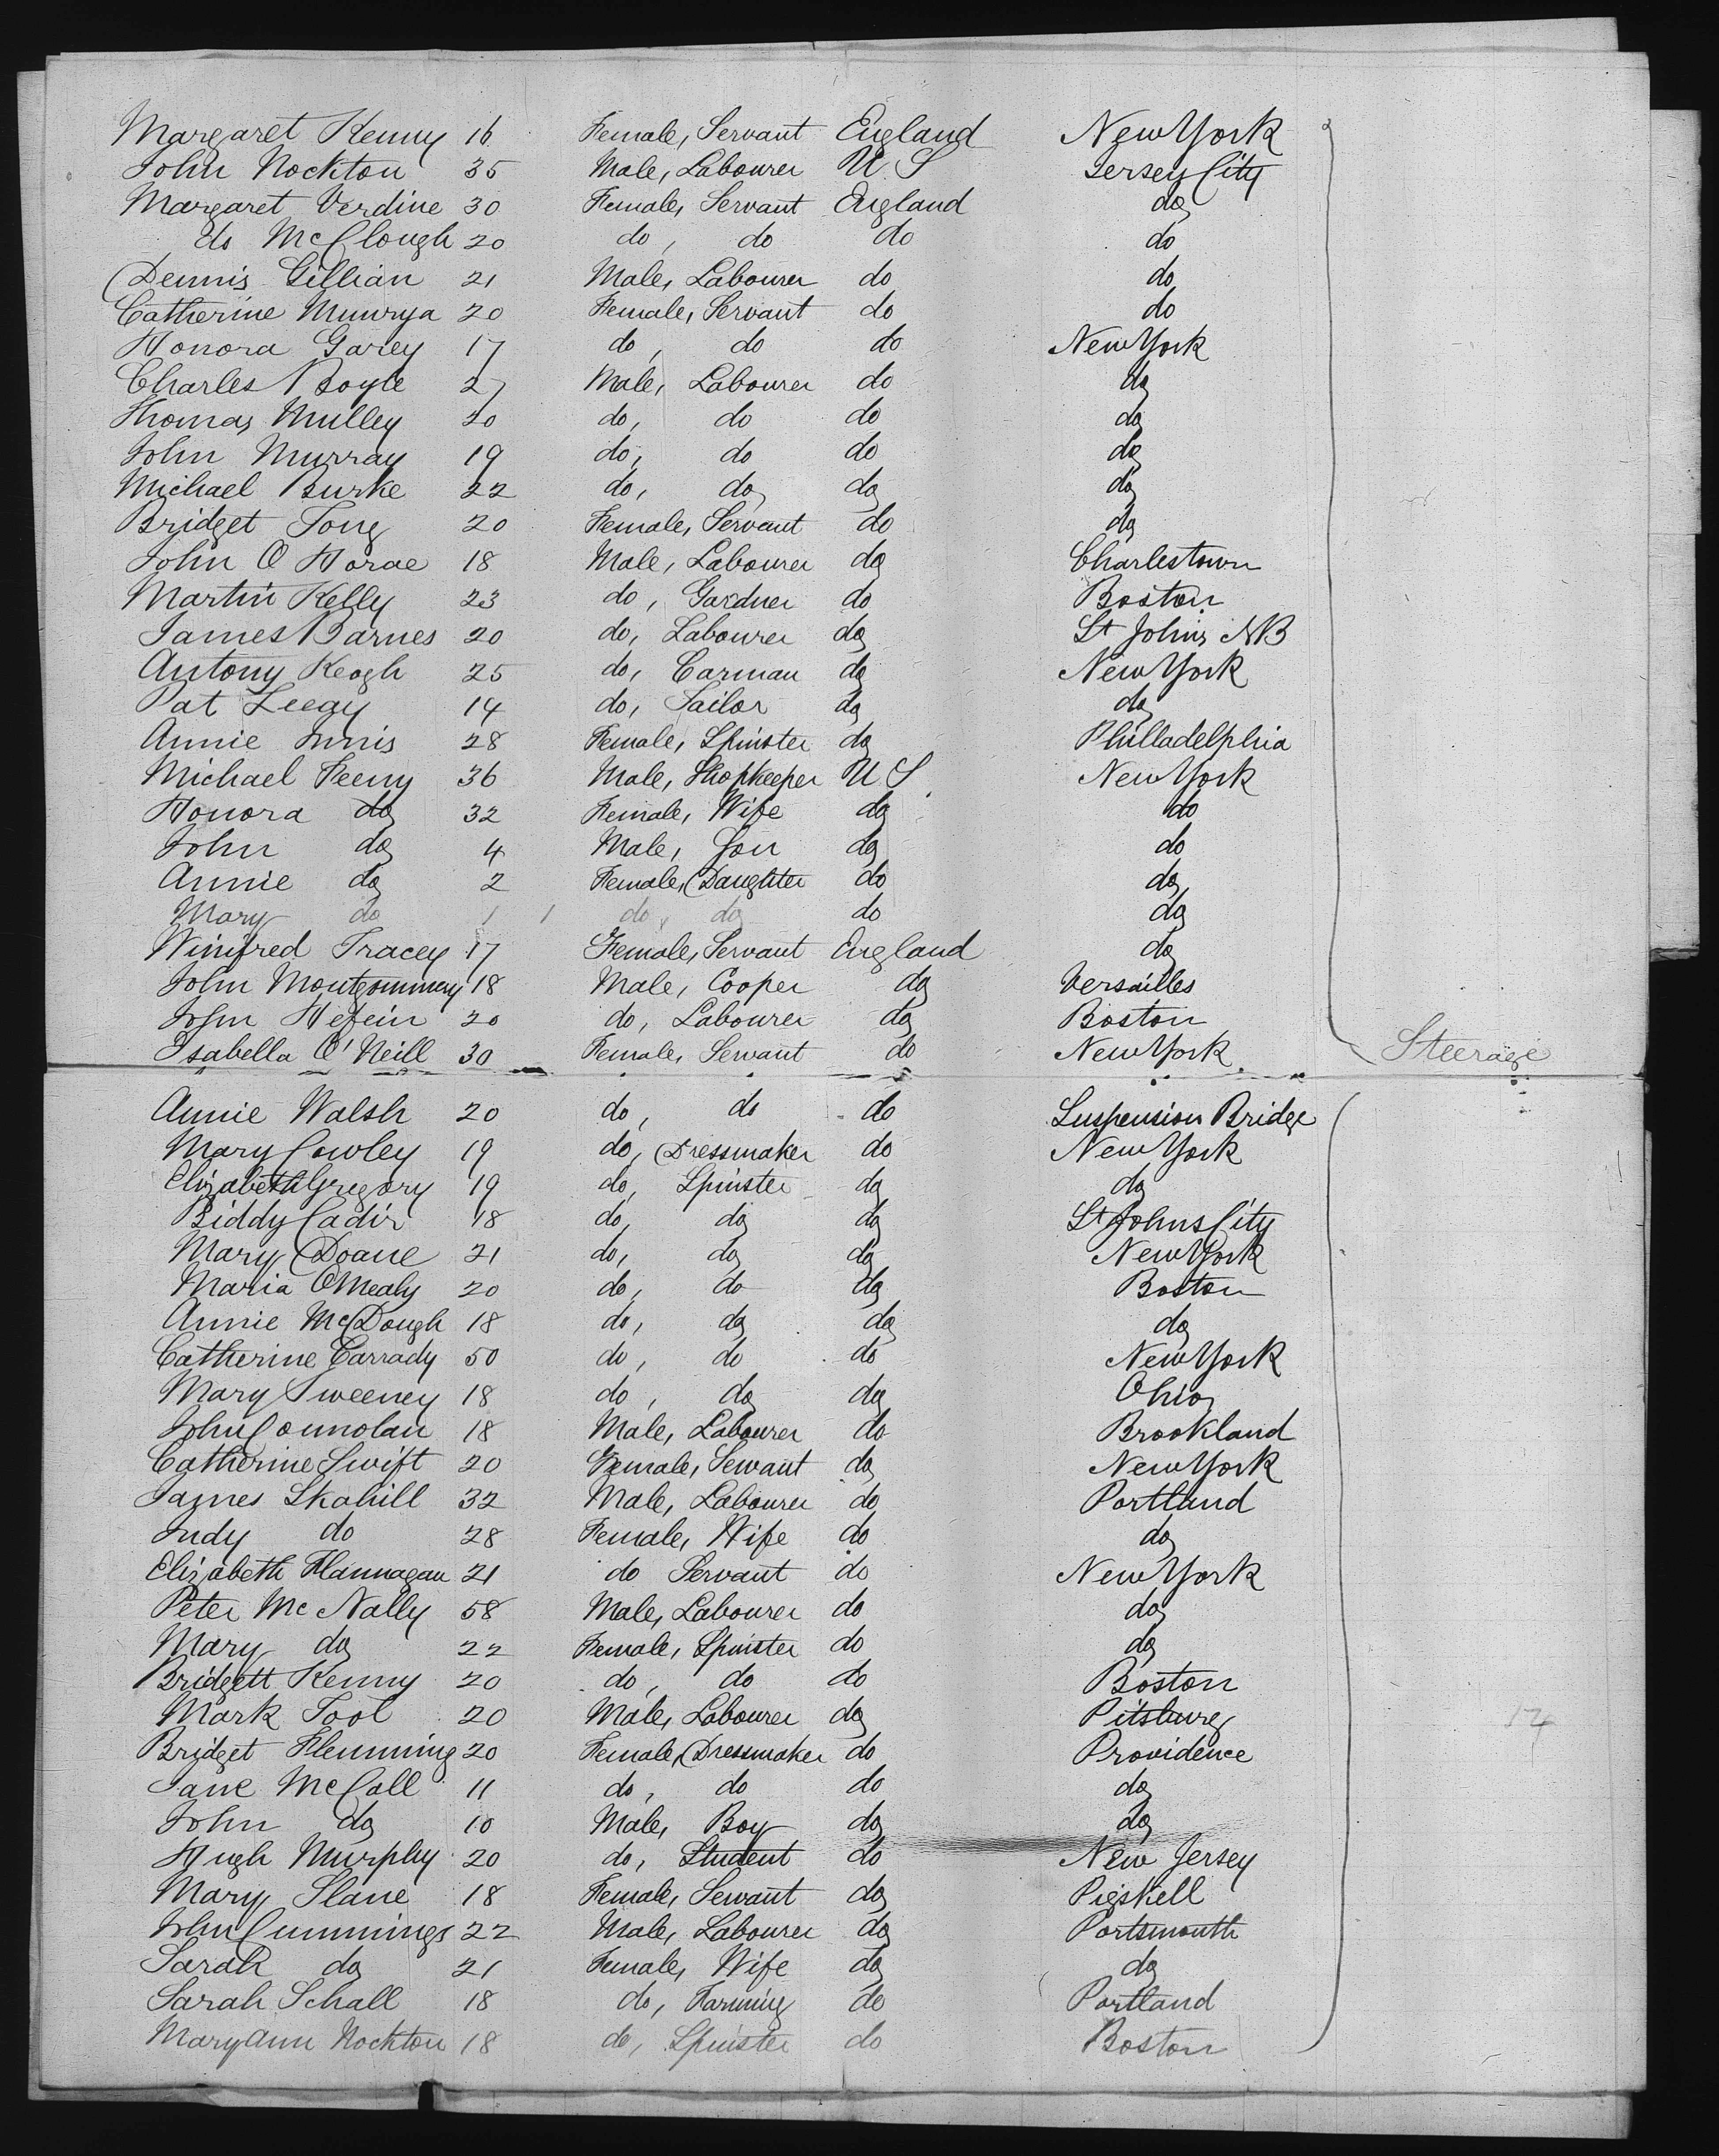 Margaret Kenny 16 Female, Servant England New York
John Nockton 35 Male, Labourer U S Jersey City
Margaret Verdine 30 Female, Servant England do
do McClough 20 do, do do do
Dennis Gillian 21 Male, Labourer do do
Catherine Munrya 20 Female, Servant do do
Honora Garey 17 do, do do New York
Charles Boyle 27 Male, Labourer do do
Thomas Mulley 20 do, do do do
John Murray 19 do, do do do
Michael Burke 22 do, do do do
Bridget Tong 20 Female, Servant do do
John O Horae 18 Male, Labourer do Charlestown
Martin Kelly 23 do, Gardner do Boston
James Barnes 20 do, Labourer do St Johns NB
Antony Keogh 25 do, Carman do New York
Pat Leegy 14 do, Sailor do do
Annie Innis 28 Female, Spinster do Philladelphia
Michael Feeny 36 Male, Shopkeeper U S New York
Honora do 32 Female, Wife do do
John do 4 Male, Son do do
Annie do 2 Female, Daughter do do
Mary do 1 1 do, do do do
Winifred Tracey 17 Female, Servant England do
John Montgommery 18 Male, Cooper do Versailles
John Hefein 20 do, Labourer do Boston
Isabella O'Neill 30 Female, Servant do New York Steerage
Annie Walsh 20 do, do do Suspension Bridge
Mary Cowley 19 do, Dressmaker do New York
Elizabeth Gregory 19 do, Spinster do do
Biddy Cadir 18 do, do do St Johns City
Mary Doane 21 do, do do New York
Maria OMealy 20 do, do do Boston
Annie McDough 18 do, do do do
Catherine Carrady 50 do, do do New York
Mary Sweeney 18 do, do do Ohio
John Connolan 18 Male, Labourer do Brookland
Catherine Swift 20 Female, Servant do New York
James Skahill 32 Male, Labourer do Portland
Judy do 28 Female, Wife do do
Elizabeth Flannagan 21 do Servant do New York
Peter Mc Nally 58 Male, Labourer do do
Mary do 22 Female, Spinster do do
Bridgett Kenny 20 do, do do Boston
Mark Tool 20 Male, Labourer do Pitsburg
Bridget Flemming 20 Female, Dressmaker do Providence
Jane McCall 11 do, do do do
John do 10 Male, Boy do do
Hugh Murphy 20 do, Student do New Jersey
Mary Slane 18 Female, Servant do Pigskell
John Cummings 22 Male, Labourer do Portsmouth
Sarah do 21 Female, Wife do do
Sarah Schall 18 do, Farming do Portland
Mary Ann Nockton 18 do, Spinster do Boston